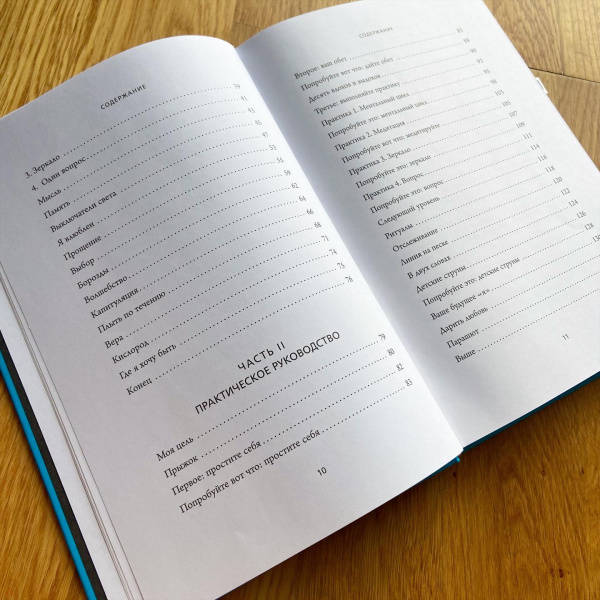 СОДЕРЖАНИЕ
3. Зеркало 39
4. Один вопрос 41
Мысль 43
Память 45
Выключатели света 47
Я влюблен 53
Прощение 56
Выбор 59
Борозды 62
Волшебство 64
Капитуляция 66
Плыть по течению 68
Вера 71
Кислород 74
Где я хочу быть
Конец 78
ЧАСТЬ II
ПРАКТИЧЕСКОЕ РУКОВОДСТВО
Моя цель 79
Прыжок 80
Первое: простите себя 82
Попробуйте вот что: простите себя 83
10
СОДЕРЖАНИЕ
Второе: ваш обет 85
Попробуйте вот что: дайте обет
Десять вдохов и выдохов
Третье: выполняйте практику
Практика 1. Ментальный цикл
Попробуйте это: ментальный цикл
Практика 2. Медитация
Попробуйте вот что: медитируйте
Практика 3. Зеркало
Попробуйте это: зеркало
Практика 4. Вопрос
Попробуйте это: вопрос
Следующий уровень
Ритуалы
Отслеживание
Линия на песке
В двух словах
Детские струны
Попробуйте это: детские струны
Ваше будущее «я»
Дарить любовь
Парашют
Выше
11